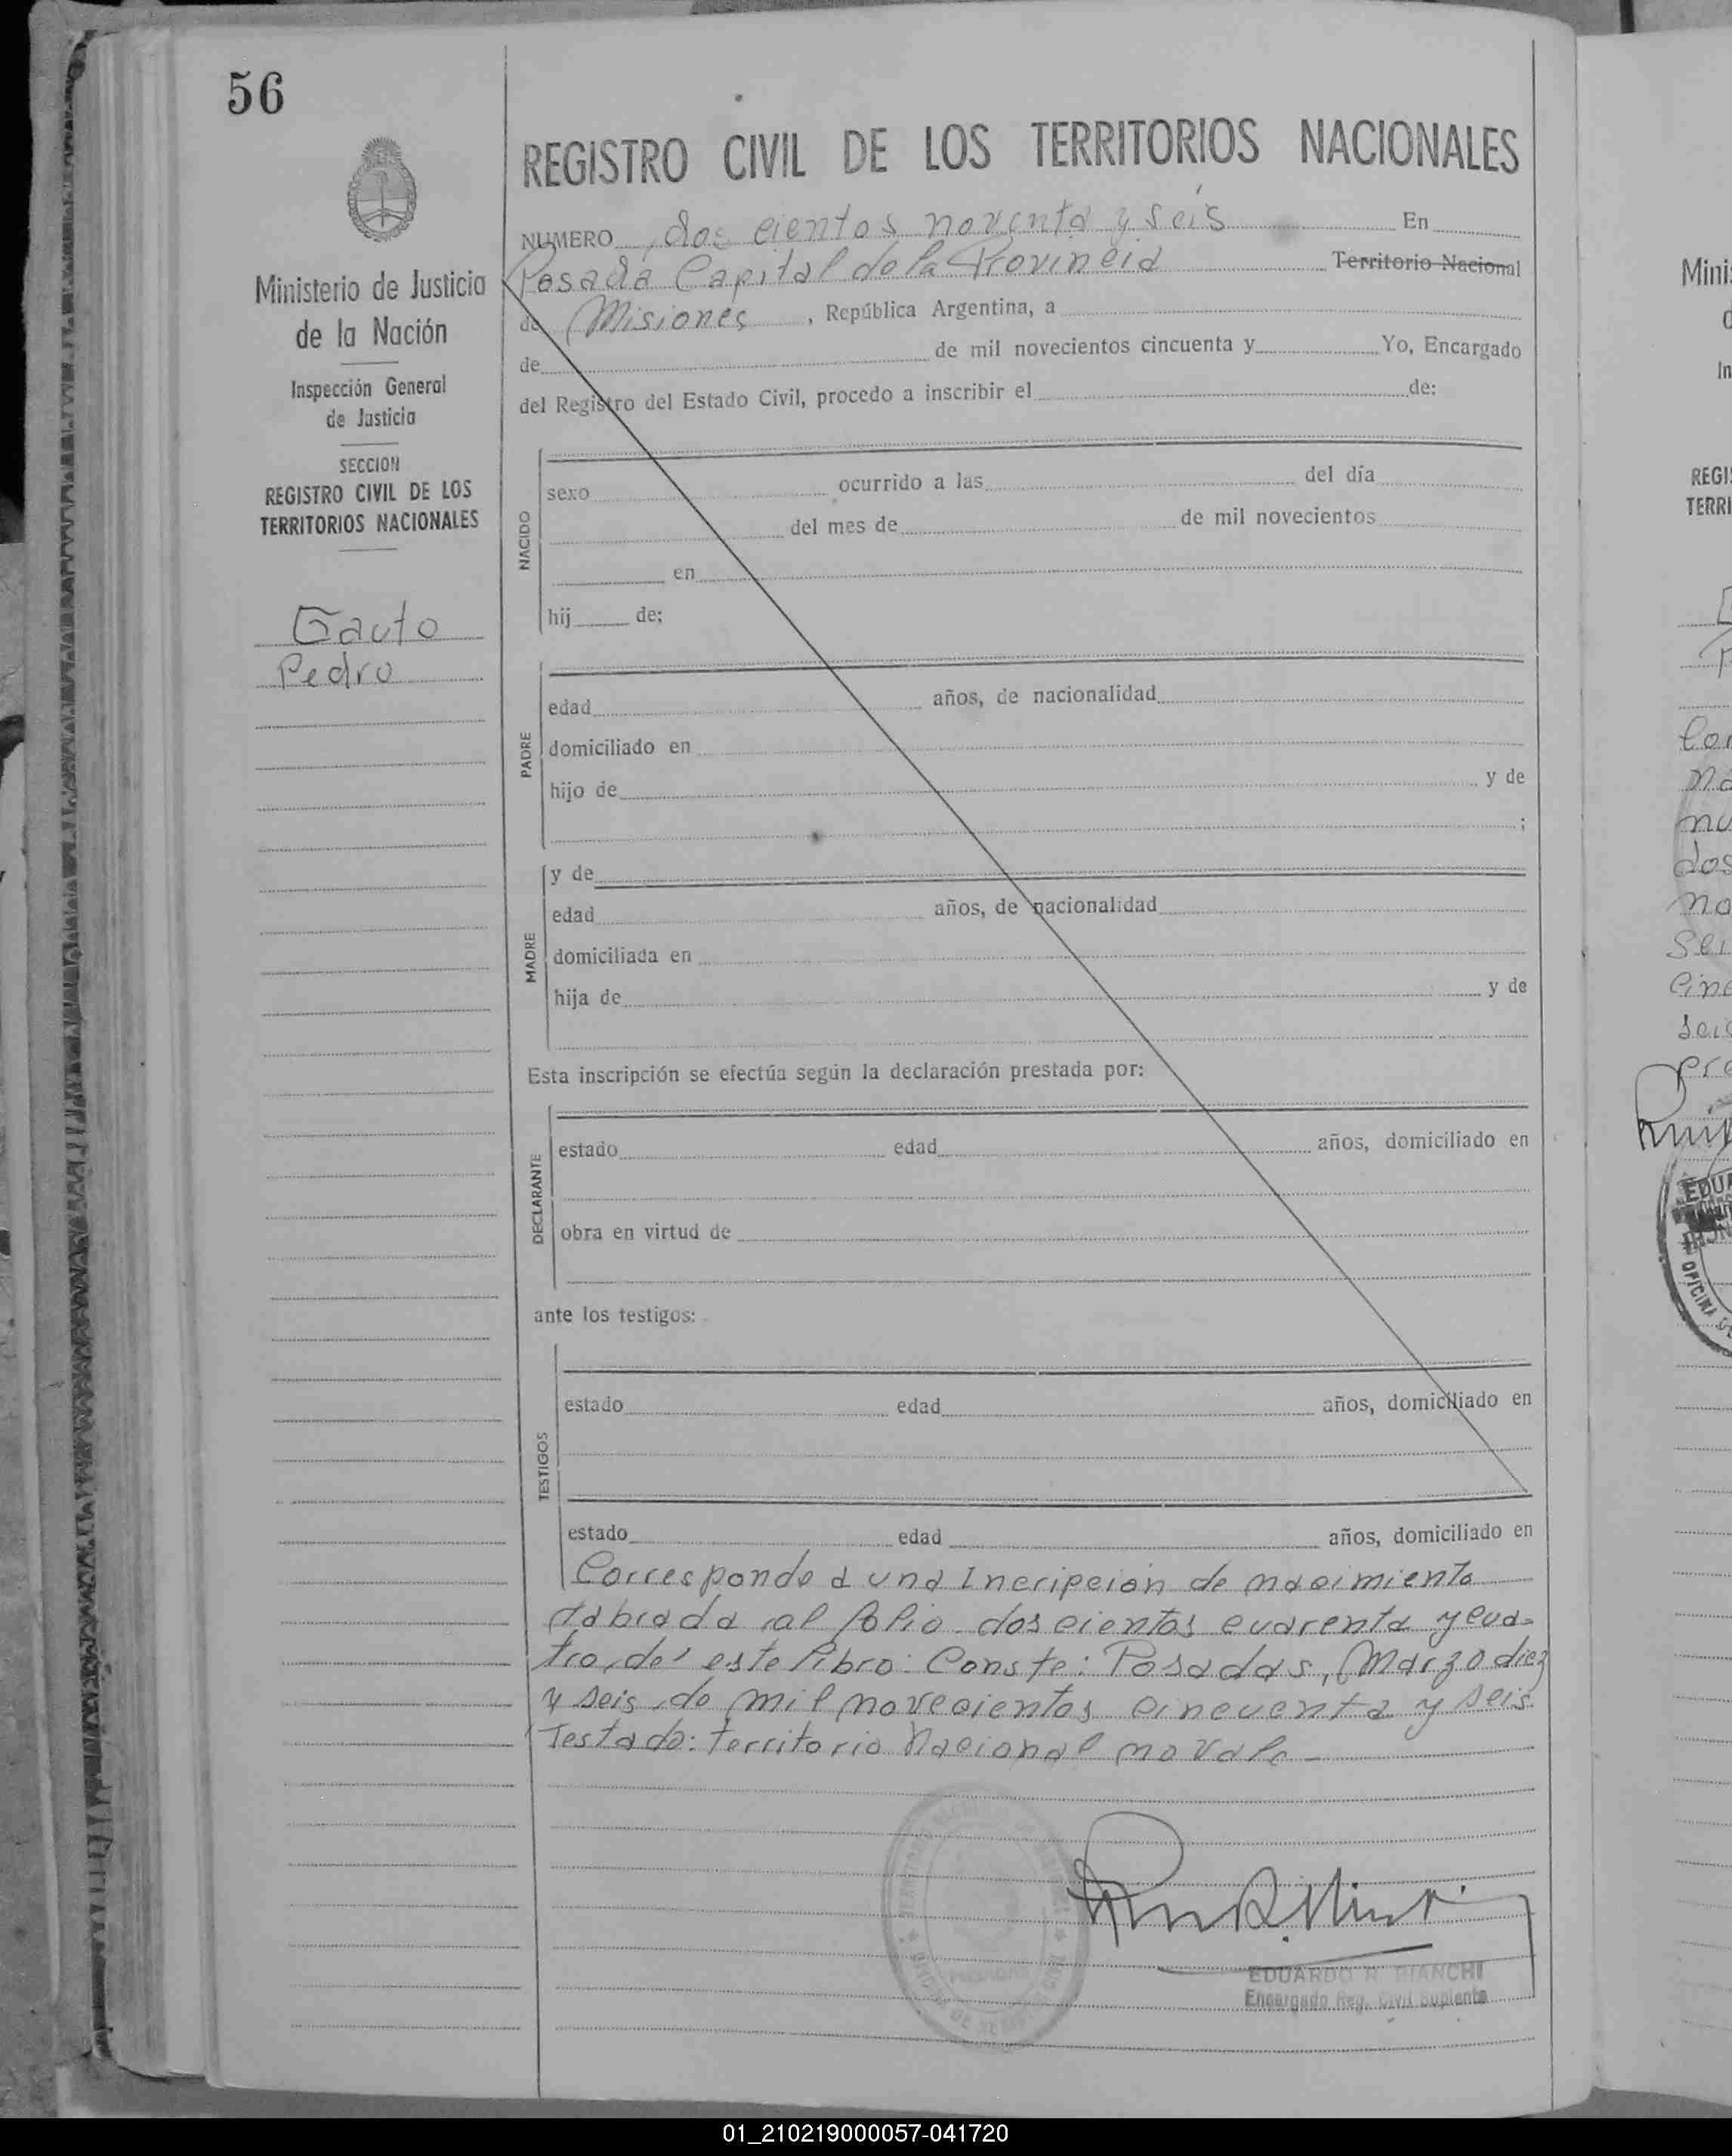 56
REGISTRO CIVIL DE LOS TERRITORIOS NACIONALES
NUMERO dos cientos noventa y seis En
Posada Capital de la Provincia Territorio Nacional
de Misiones, República Argentina, a
de de mil novecientos cincuenta y Yo, Encargado
del Registro del Estado Civil, procedo a inscribir el de:
Ministerio de Justicia
de la Nación
Inspección General
de Justicia
SECCION
REGISTRO CIVIL DE LOS
TERRITORIOS NACIONALES
Gauto
Pedro
NACIDO
sexo ocurrido a las del día
del mes de de mil novecientos
en
hij de;
PADRE
edad años, de nacionalidad
domiciliado en
hijo de y de
;
MADRE
y de
edad años, de nacionalidad
domiciliada en
hija de y de
Esta inscripción se efectúa según la declaración prestada por:
DECLARANTE
estado edad años, domiciliado en
obra en virtud de
ante los testigos:
TESTIGOS
estado edad años, domiciliado en
estado edad años, domiciliado en
Corresponde a una Incripcion de nacimiento
labrada al folio dos cientos cuarenta y cua=
tro, de este libro: Conste: Posadas, Marzo diez
y seis de mil novecientos cincuenta y seis
Testado: territorio Nacional no vale -
EDUARDO R BIANCHI
Encargado Reg. Civil Suplente
Minis
REGI
TERRI
dos
EDUA
OFICINA
01_210219000057-041720